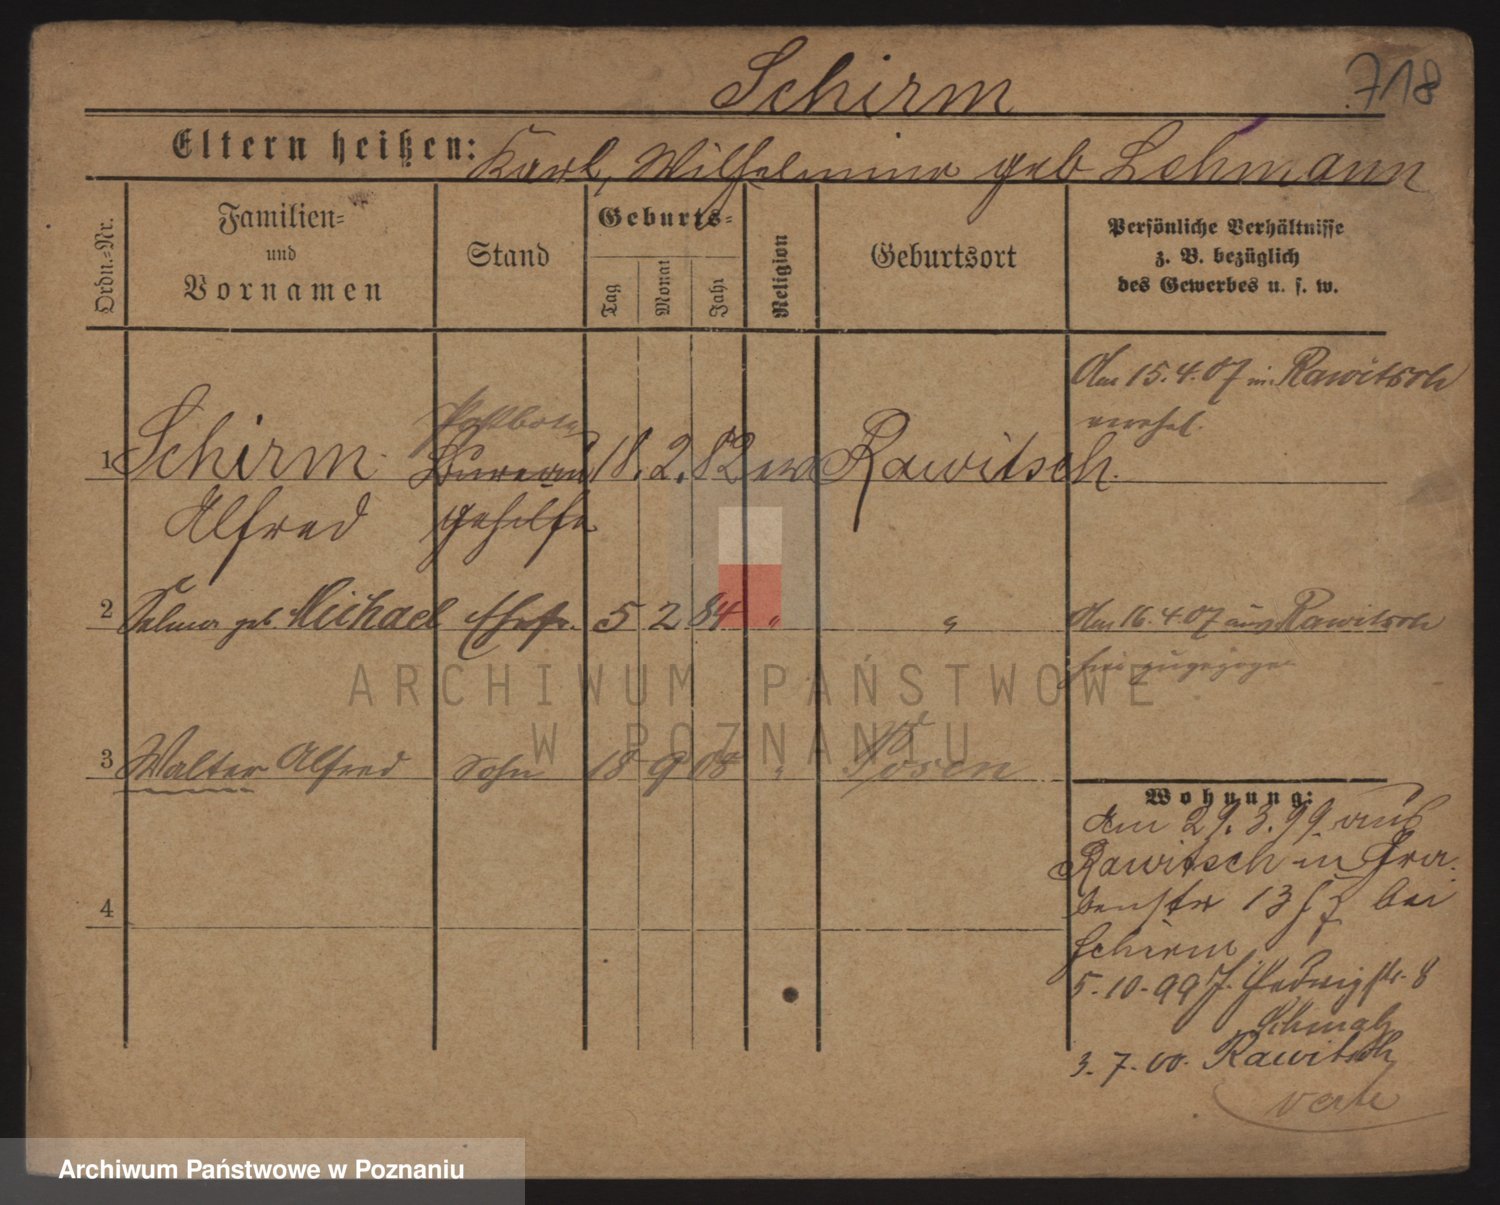 Schirm
718
Eltern heißen: Karl, Wilhelmina geb Lehmann
Ordn.-Nr.
Familien-
und
Vornamen
Stand
Geburts-
Tag
Monat
Jahr
Religion
Geburtsort
Persönliche Verhältnisse
z. B. bezüglich
des Gewerbes u. s. w.
Am 15.4.07 in Rawitsch
verehel.
Postbote
1 Schirm Bureau 18. 2. 82 ev Rawitsch.
Alfred gehilfe
2 Selma geb. Michael Ehefr. 5 2 84 " "
Am 16.4.07 aus Rawitsch
hier zugezogen
ARCHIWUM PAŃSTWOWE
W POZNANIU
3 Walter Alfred Sohn 18 9 08 " Posen
4
Wohnung:
Am 29.3.99 aus
Rawitsch in Gra-
benstr 13 bei
Schirm
5.10.99 Hedwigstr. 8
Schmalz
3.7.00. Rawitsch
verte
Archiwum Państwowe w Poznaniu